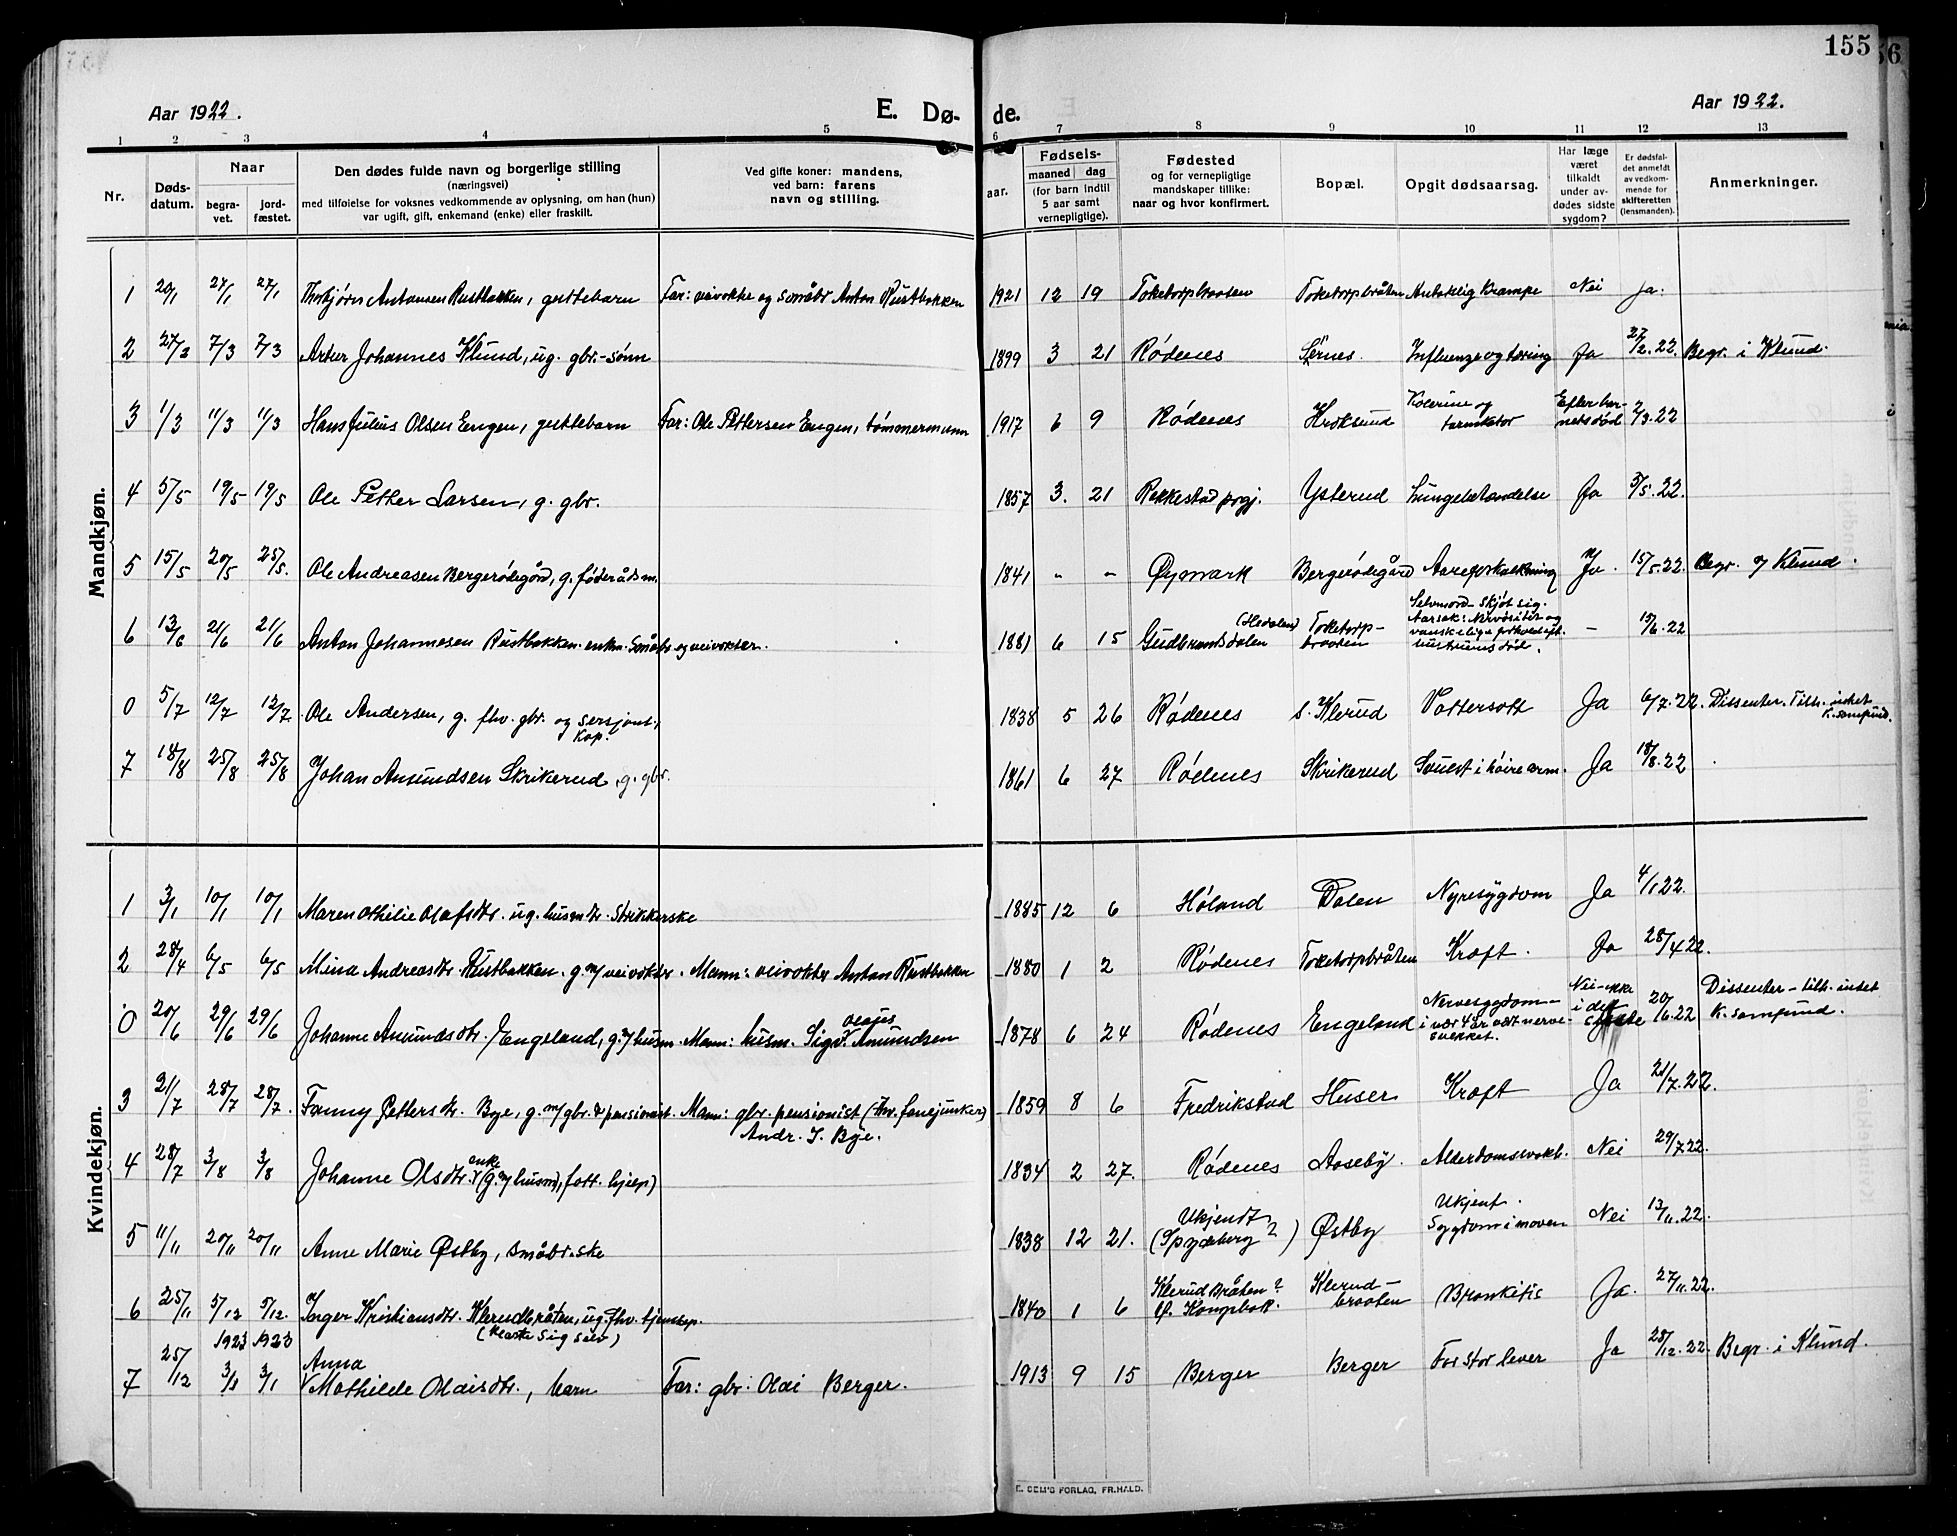 155
Aar 1922.
E. Dø-
de.
Aar 1922.
1 2 3 4 5 6 7 8 9 10 11 12 13
Nr.
Døds-
datum.
Naar
begra-
vet.
jord-
fæstet.
Den dødes fulde navn og borgerlige stilling
(næringsvei)
med tilføielse for voksnes vedkommende av oplysning, om han (hun)
var ugift, gift, enkemand (enke) eller fraskilt.
Ved gifte koner: mandens,
ved barn: farens
navn og stilling.
aar.
Fødsels-
maaned dag
(for barn indtil
5 aar samt
vernepligtige).
Fødested
og for vernepligtige
mandskaper tillike:
naar og hvor konfirmert.
Bopæl.
Opgit dødsaarsag.
Har læge
været
tilkaldt
under av-
dødes sidste
sygdom?
Er dødsfal-
det anmeldt
av vedkom-
mende for
skifteretten
(lensmanden).
Anmerkninger.
Mandkjøn.
1 20/1 27/1 27/1 Thorbjørn Antonsen Rustbakken, guttebarn Far: veivokter og småbr. Anton Rustbakken 1921 12 19 Toketorpbraaten Toketorpbråten Krampe Nei Ja.
2 27/2 7/3 7/3 Artur Johannes Klund, ug. gbr.-sønn 1899 3 21 Rødenes Influenza og tæring Ja 27/2.22. Begr. i Klund.
3 1/3 11/3 11/3 Hans Julius Olsen Engen, guttebarn Far: Ole Pettersen Engen, tømmermann 1917 6 9 Rødenes Kroksund Kolerine og tarmkatar Efter barnets død 2/3.22
4 5/5 19/5 19/5 Ole Petter Larsen, g. gbr. 1857 3. 21 Rakkestad prgj. Ysterud Lungebetændelse Ja 5/5.22.
5 15/5 20/5 25/5. Ole Andreasen Bergerødegård, g. føderådsm. 1841 - - Øymark Bergerødegård Aareforkalkning Ja. 15/5.22. Begr. i Klund.
6 13/6 21/6 21/6 Anton Johannesen Rustbakken. enkm. Småbr. og veivokter. 1881 6 15 (Hedalen) Gudbrandsdalen Toketorp-braaten Selvmord - skjøt sig. Aarsak: Nervøsitet og vanskelige forhold eft. hustruens død. - 13/6.22
0 5/7 12/7 12/7. Ole Andersen, g. fhv. gbr. og sersjant, Kap. 1838 5 26 Rødenes s. Klerud Vattersott Ja 6/7.22. Dissenter. Tilh. intet K. samfund.
7 18/8 25/8 25/8 Johan Amundsen Skrikerud, g. gbr. 1861 6 27 Rødenes Skrikerud Svulst i høire arm. Ja 18/8.22
Kvindekjøn.
1 3/1 10/1 10/1 Maren Othilie Olafsdtr. ug. husm.dtr. Strikkerske 1885 12 6 Høland Dalen Nyresygdom Ja 4/1.22.
2 28/4 6/5 6/5 Mina Andreasdtr. Rustbakken. g. m/ veivokter. Mann: veivokter Anton Rustbakken 1880 1 2 Rødenes Toketorpbråten Kræft. Ja 28/4.22.
0 20/6 29/6 29/6 Johanne Amundsdtr. Engeland, g. m/ husm. Mann: husm. Sigv. Olaus Amundsen 1878 6 24 Rødenes Engeland Nervesygdom - i vær 4 år vært nerve-svekket. Nei - ikke i det siste 20/6.22 Dissenter - tilh. intet K. samfund.
3 21/7 28/7 28/7. Fanny Pettersdtr. Bye, g. m/ gbr. & pensionist. Mann: gbr. pensionist (fhv. fanejunker) Andr. J. Bye. 1859 8 6 Fredrikstad Huser Kræft Ja 21/7.22.
4 28/7 3/8 3/8 Johanne Olsdtr. enke (g. m/ husm), fatt. hjelp) 1834 2 27. Rødenes Aaseby. Alderdomssvakh. Nei 29/7.22.
5 11/11 20/11 20/11 Anne Marie Østby, småbr.ske 1838 12 21. Ukjendt (Spydeberg?) Østby Ukjent. Sygdom i maven Nei 13/11.22.
6 25/11 5/12 5/12. Inger Kristiansdtr. Klerudbråten, ug. fhv. tjenestep. (Klarte sig selv) 1840 1 6 Klerud Bråten? Klerud-braaten Bronkitis Ja. 27/11.22.
7 25/12 1923 3/1 1923 3/1 Anna Mathilde Olaisdtr., barn Far: gbr. Olai Berger. 1913 9 15 Berger Berger For stor lever Ja 28/12.22. Begr. i Klund.
E. SEM'S FORLAG, FR.HALD.